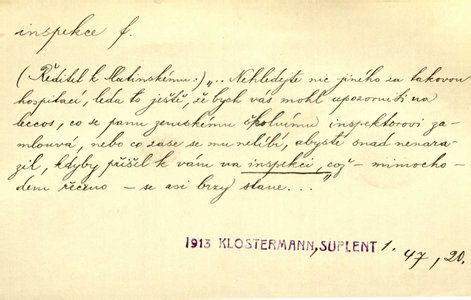 inspekce f.
(Ředitel k Mutinskému:) „.. Nehledejte nic jiného za takovou
hospitací, leda to ještě, že bych vás mohl upozorniti na
leccos, co se panu zemskému školnímu inspektorovi za-
mlouvá, nebo co zase se mu nelíbí, abyste snad nenara-
zil, kdyby přišel k vám na inspekci, což – mimocho-
dem řečeno – se asi brzy stane...“
1913 KLOSTERMANN, SUPLENT 1. 47, 20.